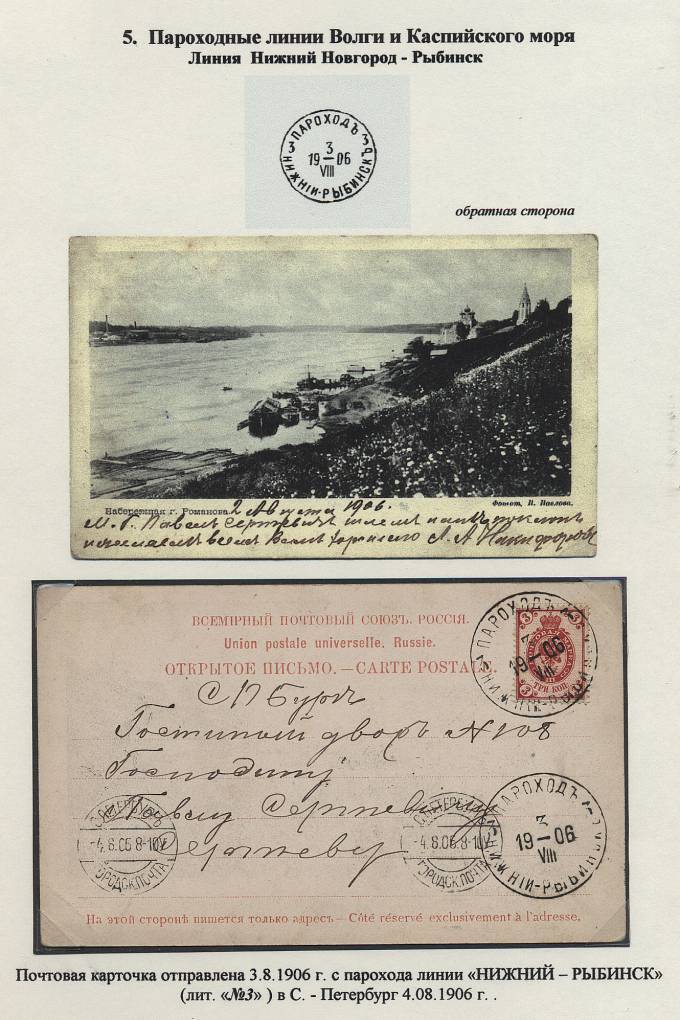 5. Пароходные линии Волги и Каспийского моря
Линия Нижний Новгород - Рыбинск
ПАРОХОДЪ
3 3
3
19 — 06
VIII
НИЖНІЙ-РЫБИНСКЪ
обратная сторона
Набережная г. Романова.
Фотот. П. Павлова.
2 Августа 1906.
М. Г. Павелъ Сергѣевичъ шлемъ
всем Вамъ
ВСЕМІРНЫЙ ПОЧТОВЫЙ СОЮЗЪ. РОССІЯ.
Union postale universelle. Russie.
ОТКРЫТОЕ ПИСЬМО. — CARTE POSTALE.
3 3
ТРИ КОП.
ПАРОХОДЪ
3
19—06
VIII
СПБургъ
Гостиный дворъ N 108
Господину
Павлу Сергѣевичу
Сергѣеву
С.ПЕТЕРБУРГЪ
-4.8.06 8-10V
ГОРОДСК.ПОЧТА
С.ПЕТЕРБУРГЪ
-4.8.06 8-10V
ГОРОДСК.ПОЧТА
ПАРОХОДЪ
3
19—06
VIII
НИЖНІЙ-РЫБИНСКЪ
На этой сторонѣ пишется только адресъ.— Côté réservé exclusivement à l'adresse.
Почтовая карточка отправлена 3.8.1906 г. с парохода линии «НИЖНИЙ – РЫБИНСК»
(лит. «№3» ) в С. - Петербург 4.08.1906 г. .